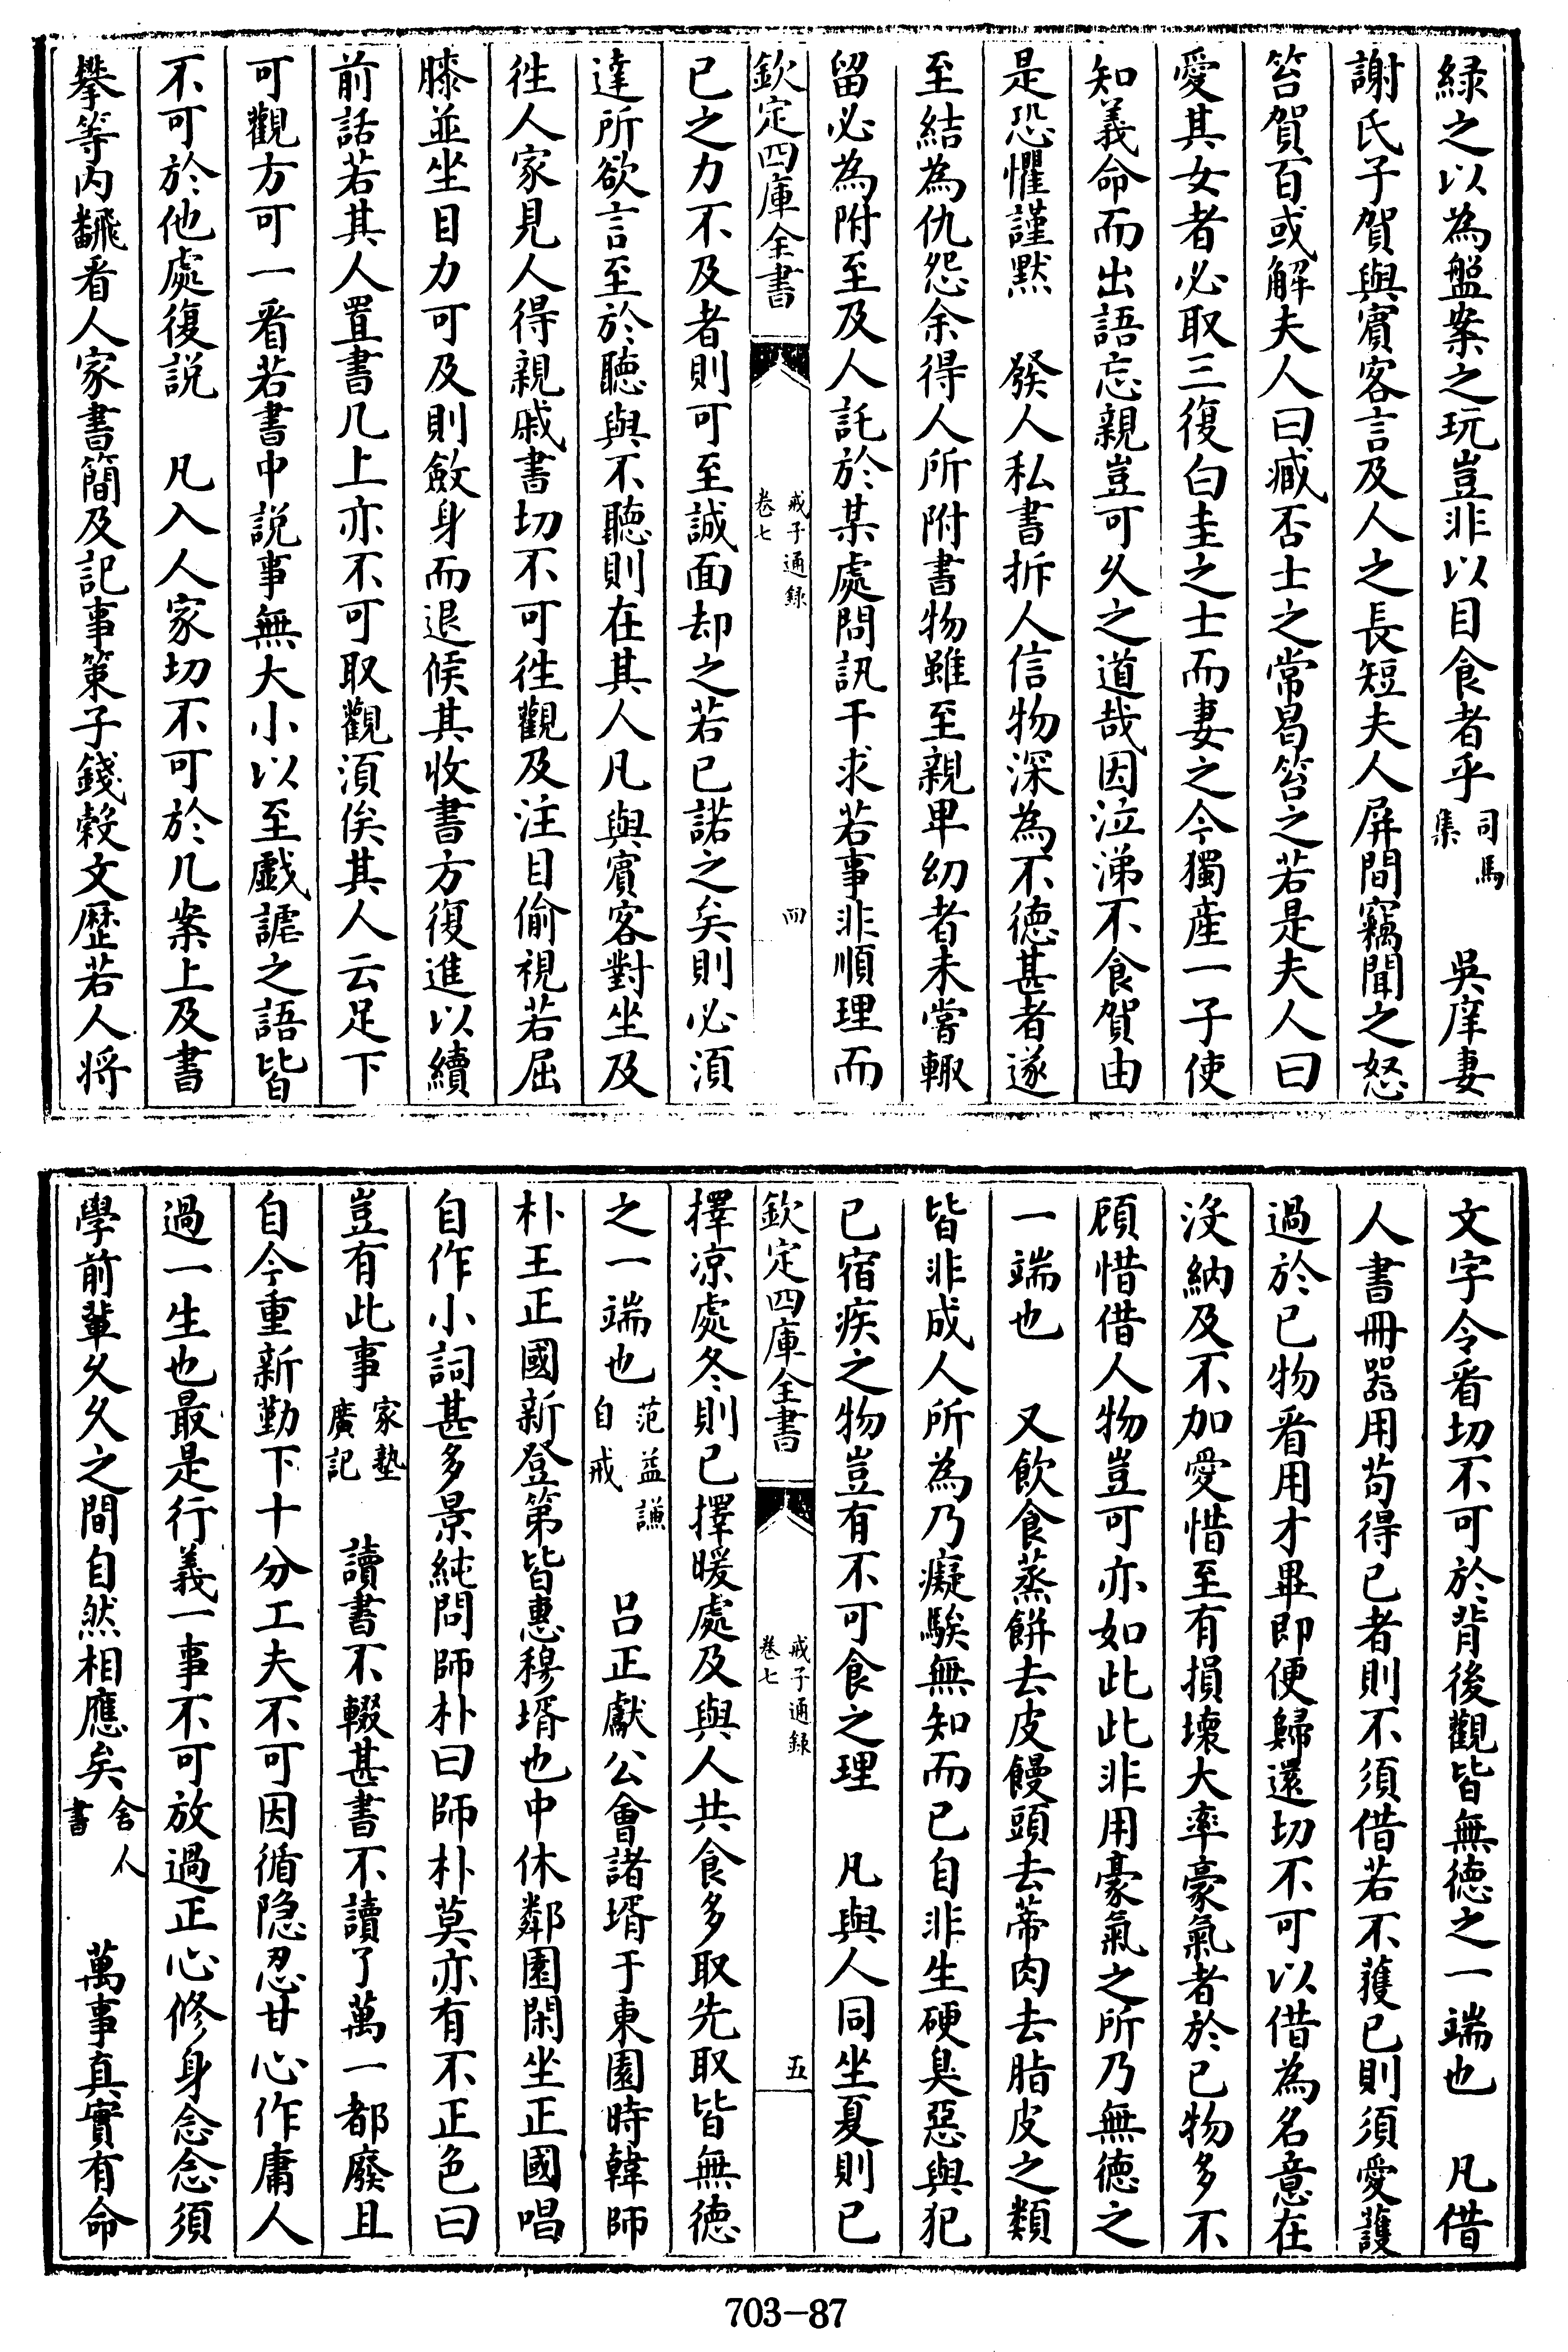 緑之以為盤案之玩豈非以目食者乎司馬集　吳庠妻
謝氏子賀與賓客言及人之長短夫人屏間竊聞之怒
笞賀百或解夫人曰臧否士之常曷笞之若是夫人曰
愛其女者必取三復白圭之士而妻之今獨産一子使
知義命而出語忘親豈可久之道哉因泣涕不食賀由
是恐懼謹默　發人私書拆人信物深為不徳甚者遂
至結為仇怨余得人所附書物雖至親卑幼者未嘗輙
留必為附至及人託於某處問訊干求若事非順理而
欽定四庫全書
戒子通録
卷七
四
已之力不及者則可至誠面却之若已諾之矣則必須
達所欲言至於聽與不聽則在其人凡與賓客對坐及
徃人家見人得親戚書切不可徃觀及注目偷視若屈
膝並坐目力可及則斂身而退候其收書方復進以續
前話若其人置書几上亦不可取觀須俟其人云足下
可觀方可一看若書中説事無大小以至戲謔之語皆
不可於他處復説　凡入人家切不可於几案上及書
攀等内飜看人家書簡及記事策子錢榖文歴若人将
文字令看切不可於背後觀皆無徳之一端也　凡借
人書冊器用苟得已者則不須借若不獲已則須愛護
過於已物看用才畢即便歸還切不可以借為名意在
沒納及不加愛惜至有損壊大率豪氣者於已物多不
顧惜借人物豈可亦如此此非用豪氣之所乃無徳之
一端也　又飲食蒸餅去皮饅頭去蒂肉去脂皮之類
皆非成人所為乃癡騃無知而已自非生硬臭惡與犯
已宿疾之物豈有不可食之理　凡與人同坐夏則已
欽定四庫全書
戒子通録
卷七
五
擇凉處冬則已擇暖處及與人共食多取先取皆無徳
之一端也范益謙自戒　吕正獻公會諸壻于東園時韓師
朴王正國新登第皆惠穆壻也中休鄰園閑坐正國唱
自作小詞甚多景純問師朴曰師朴莫亦有不正色曰
豈有此事家塾廣記　讀書不輟甚書不讀了萬一都廢且
自今重新勤下十分工夫不可因循隐忍甘心作庸人
過一生也最是行義一事不可放過正心修身念念須
學前輩久久之間自然相應矣舍人書　萬事真實有命
703-87